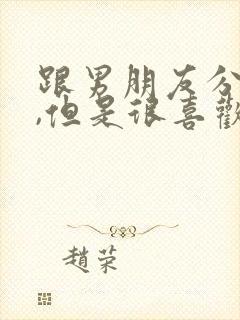 跟男朋友分
,但是很喜歡
趙荣